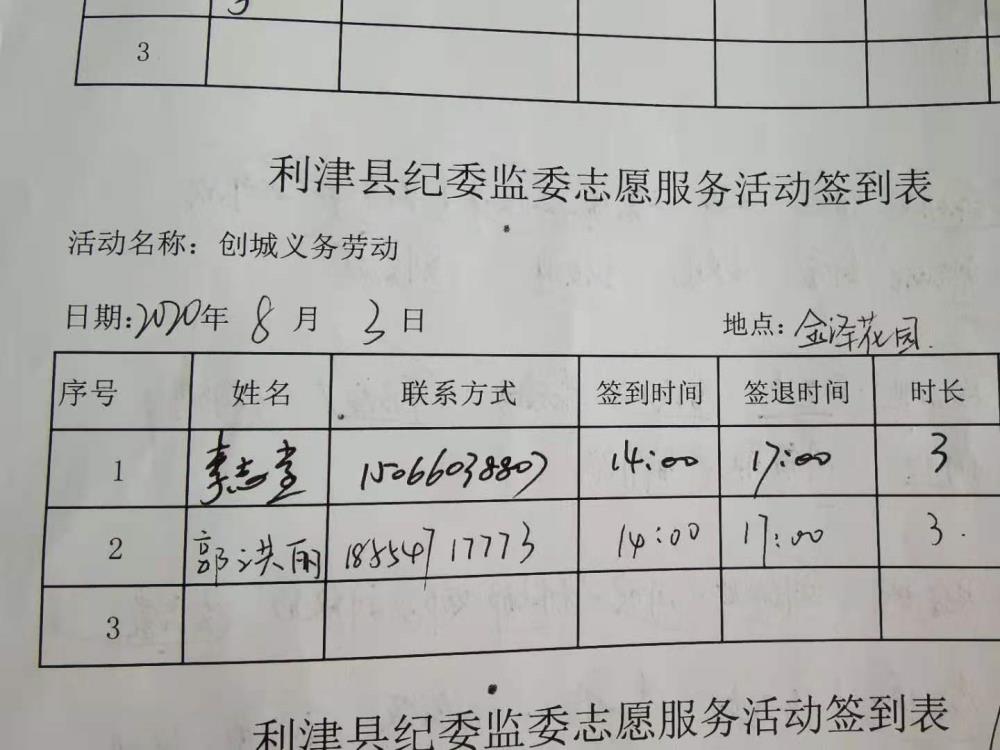 3
利津县纪委监委志愿服务活动签到表
活动名称：创城义务劳动
日期:2020年 8 月 3 日 地点：金泽花园.
序号 姓名 联系方式 签到时间 签退时间 时长
1 李志堂 15066038807 14:00 17:00 3
2 郭洪丽 18554717773 14:00 17:00 3.
3
利津县纪委监委志愿服务活动签到表